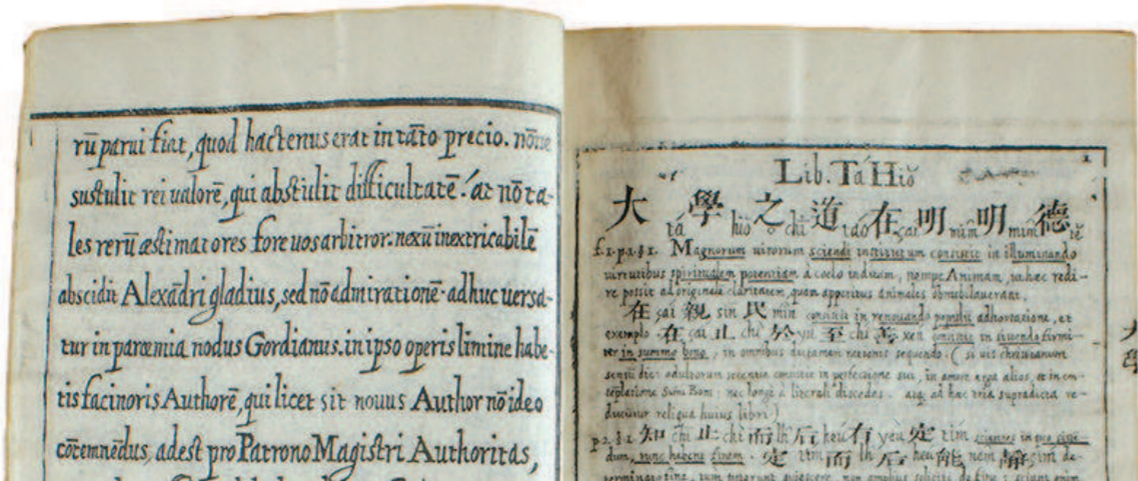 rū parui fiat, quod hactenus erat in tāto precio. nōne
sustulit rei valorē, qui abstulit difficultatē? at nō ta-
les rerū æstimatores fore vos arbitror. nexū inextricabilē
abscidit Alexādri gladius, sed nō admirationē. adhuc versa-
tur in parœmia nodus Gordianus. in ipso operis limine habe-
tis facinoris Authorē, qui licet sit nouus Author nō ideo
cōtemnēdus, adest pro Patrono Magistri Authoritas,
1
Lib. Tá Hiŏ
大 tá 學 hiŏ 之 chī 道 táo 在 çai 明 mîm 明 mîm 德 tĕ
f.1.p.1.§1. Magnorum uirorum sciendi institutum consistit in illuminando
uirtutibus spiritualem potentiam à coelo inditam, nempe Animam, ut haec redi-
re possit ad originalem claritatem, quam appetitus animales obnubilauerant.
在 çai 親 sin 民 mîn consistit in renouando populū adhortatione, et
exemplo. 在 çai 止 chì 於 yû 至 chi 善 xén consistit in sistendo firmi-
ter in summo bono, in omnibus dictamen rationis sequendo. (si uis christianum
sensū dic: adultorum scientia consistit in perfectione sui, in amore erga alios, et in con-
templatione Sumi Boni: nec longè à literali discedas. atq; ad haec tria supradicta re-
ducuntur reliqua huius libri)
p.2.§.1. 知 chī 止 chì 而 lh 后 heú 有 yeù 定 tím
dum, tunc habent finem. 定 tím 而 lh 后 heu 能 nem 靜 çim de-
大
學